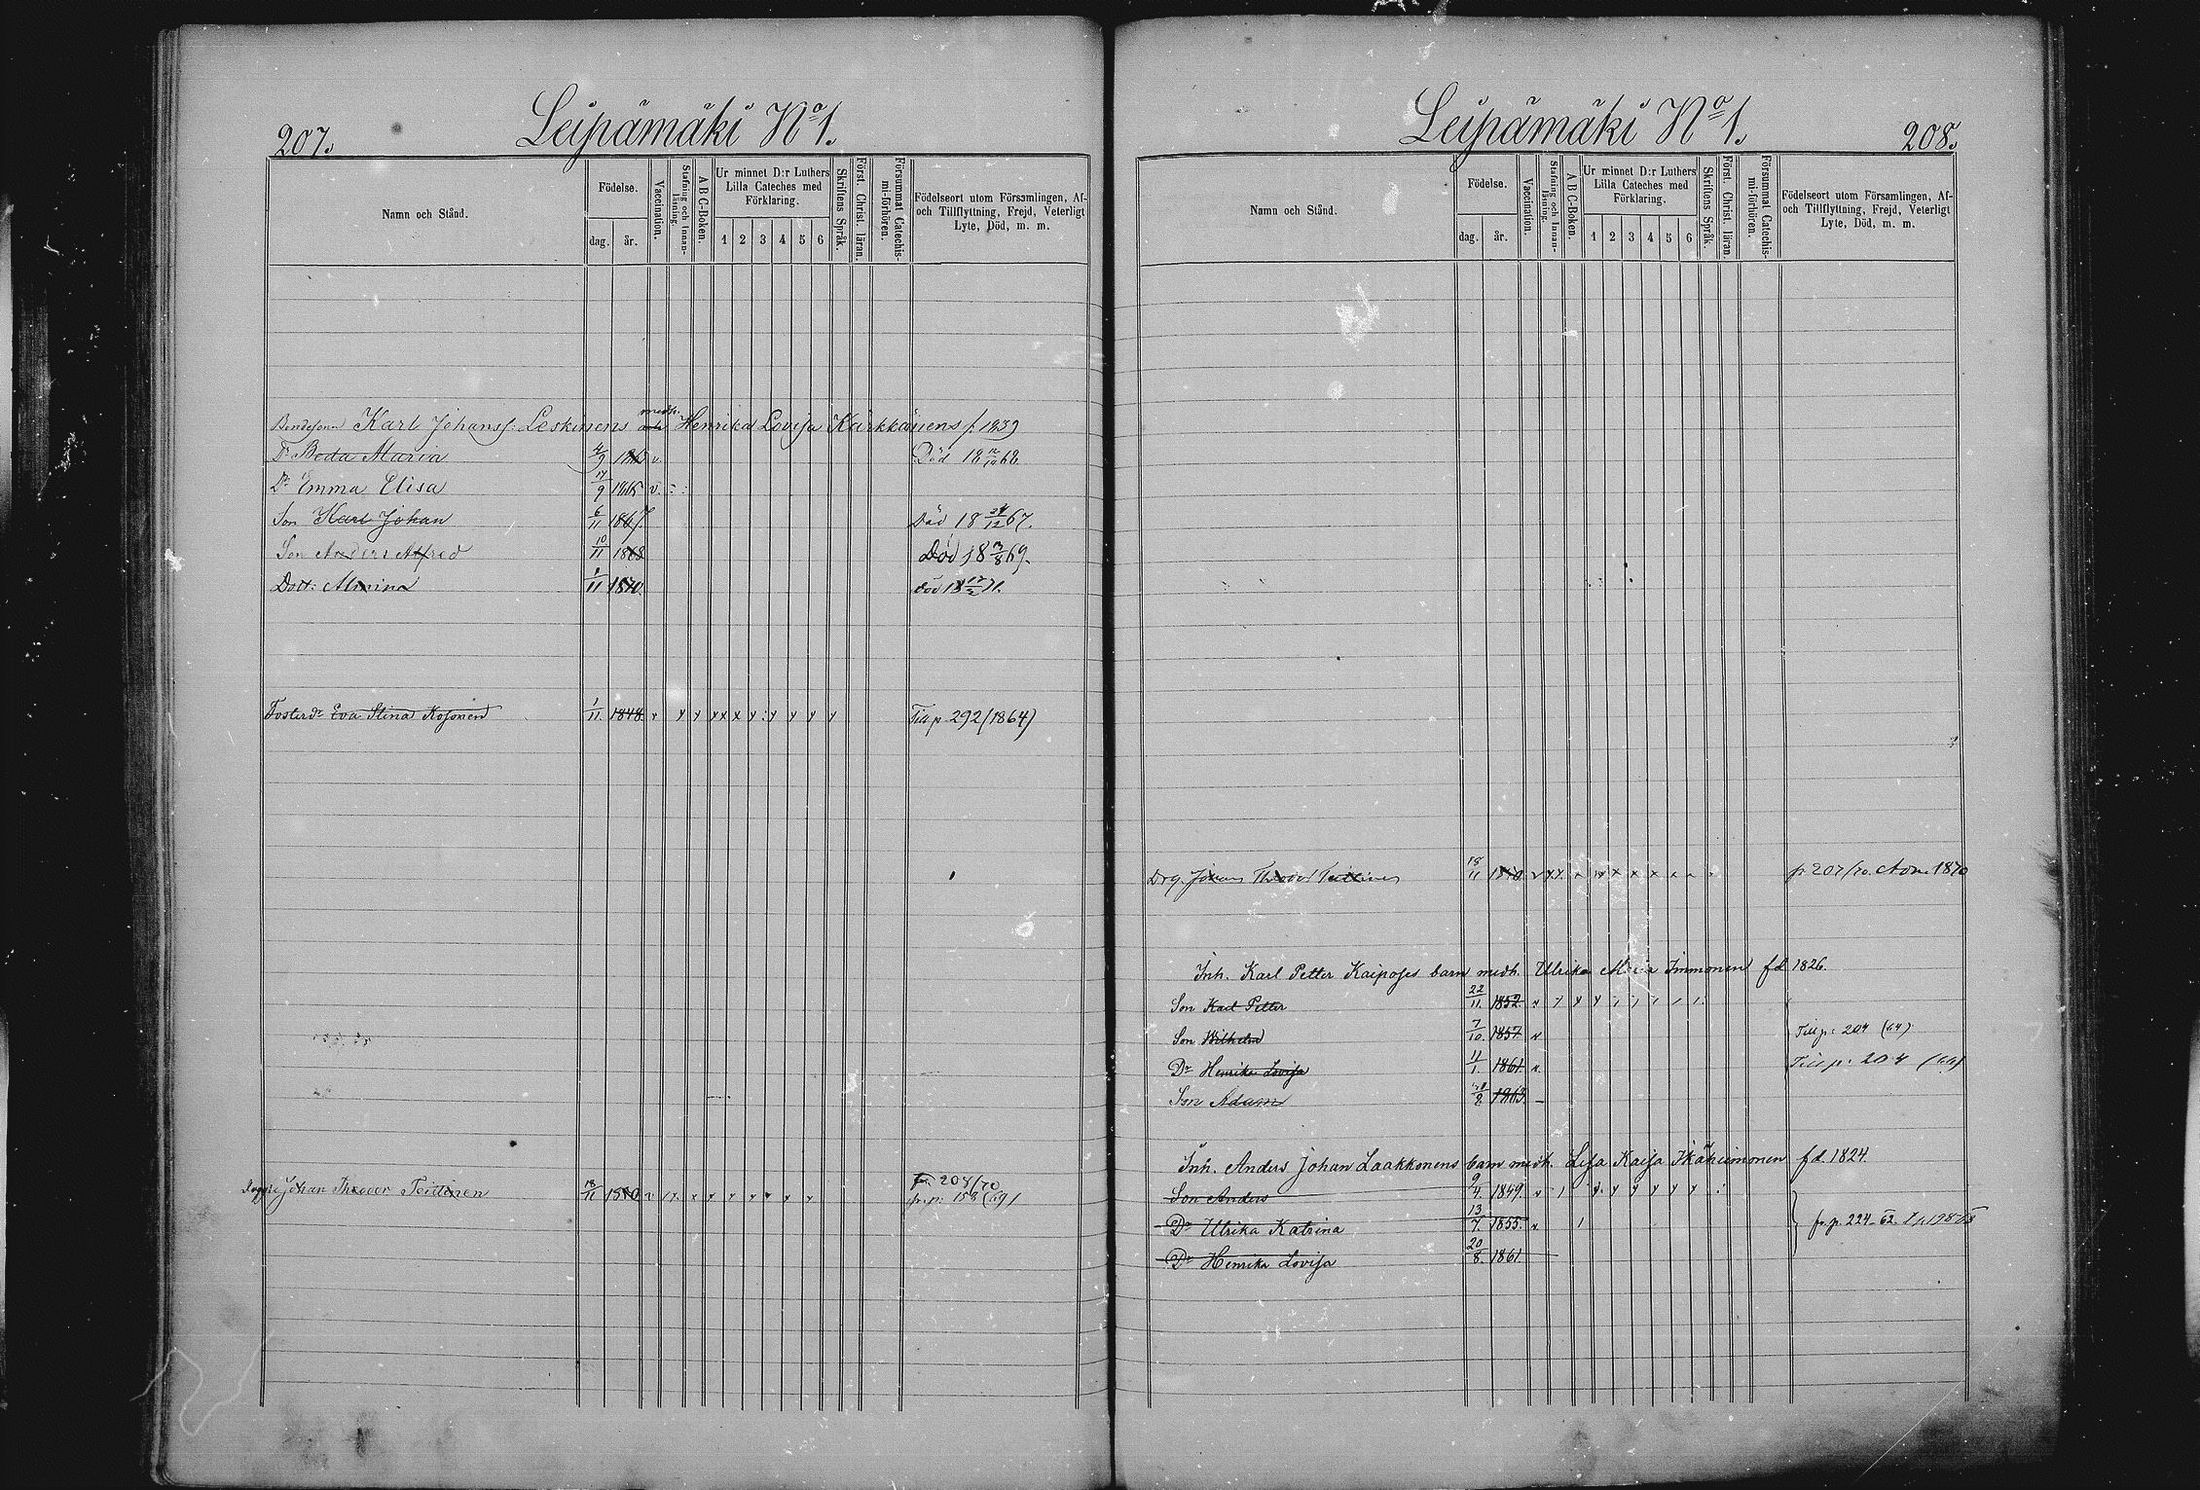 207.
Leipämäki No 1.
Namn och Stånd.
Födelse.
dag.
år.
Vaccination.
Stafning och Innan-läsning.
A B C-Boken.
Ur minnet D:r Luthers
Lilla Cateches med
Förklaring.
1 2 3 4 5 6
Skriftens Språk.
Först. Christ. läran.
Försummat Catechis-mi-förhören.
Födelseort utom Församlingen, Af-
och Tillflyttning, Frejd, Veterligt
Lyte, Död, m. m.
Bondesonn Karl Johanss: Leskinens medh. Henrika Lovisa Kärkkäinens f. 1839
Dr Beda Maria 4/9 186 v. Död 18 /10 68.
Dr Emma Elisa 17/9 1865 v.
Son Karl Johan 6/11 1867. Död 18 24/12 67.
Son Anders Alfred 10/11 1868 Död 18 /8 69.
Dott: Almina 1/11 1870. död 18 /2 71.
Fosterdr Eva Stina Kosonen 1/11. 1848. v Till p 292 (1864)
Johan Theodor Teittinen 18/11 v fr. 207/70
fr. p: 158 (69)
Leipämäki No 1.
208.
Namn och Stånd.
Födelse.
dag.
år.
Vaccination.
Stafning och Innan-läsning.
A B C-Boken.
Ur minnet D:r Luthers
Lilla Cateches med
Förklaring.
1 2 3 4 5 6
Skriftens Språk.
Först. Christ. läran.
Försummat Catechis-mi-förhören.
Födelseort utom Församlingen, Af-
och Tillflyttning, Frejd, Veterligt
Lyte, Död, m. m.
Drg. Johan Theodor Teittinen 18/11 p. 207/70. Adm. 1870
Inh. Karl Petter Kaiposes barn medh. Ulrika Maria Immonen fd 1826.
Son Karl Petter 22/11. 1852.
Son Wilhelm 7/10. 1857 Till p: 204 (64)
Dr Henrika Lovisa 11/1. 1861 Till p: 204 (64)
Son Adam /8 1863. –
Inh. Anders Johan Laakkonens barn medh. Lisa Kaisa Ikäheimonen fd. 1824.
Son Anders 9/4. 1849.
Dr Ulrika Katrina 13/7. 1855. fr. p. 224-62.
Dr Henrika Lovisa 20/8. 1861.